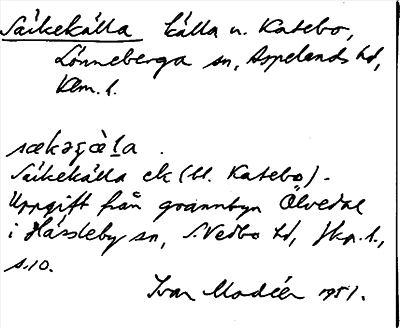 Säkekälla källa u. Katebo,
Lönneberga sn, Aspelands hd,
Klm. l.
sækəçὰḷa.
Säkekälla ck (bl. Katebo).
Uppgift från grannbyn Ölvedal
i Hässleby sn, S. Vedbo hd, Jkp. l.,
s. 10.
Ivar Modéer 1951.